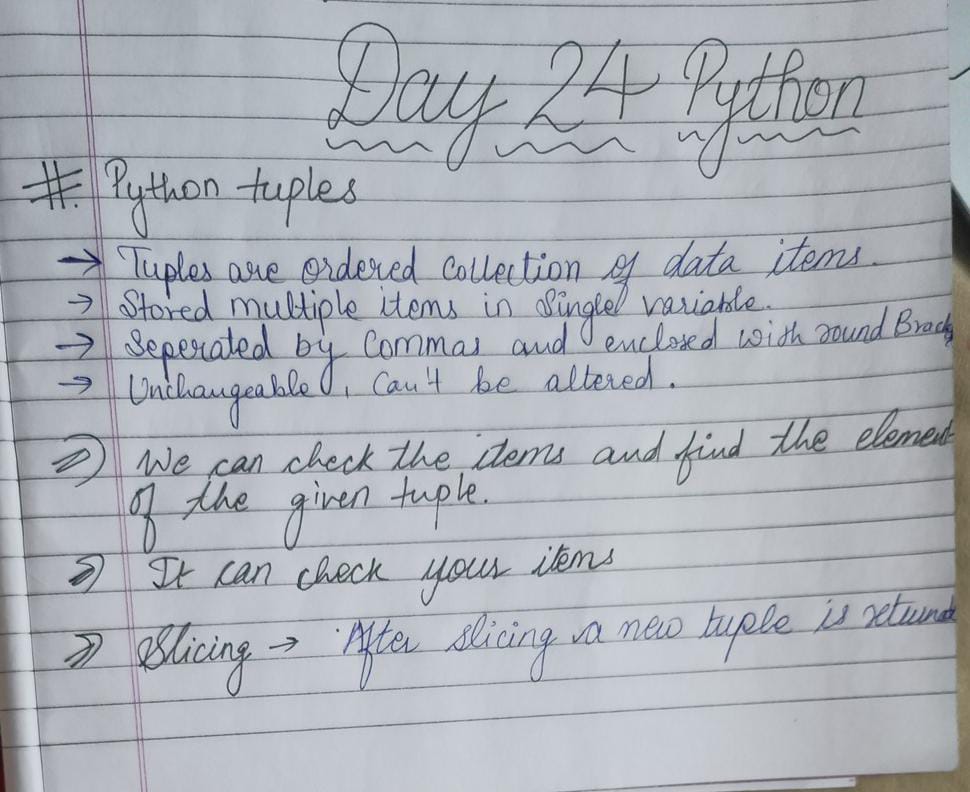 Day 24 Python
#. Python tuples
→ Tuples are ordered collection of data items.
→ Stored multiple items in single variable.
→ Seperated by Commas and enclosed with round
→ Unchangeable, Can't be altered.
⇒ We can check the items and find the element
of the given tuple.
⇒ It can check your items
⇒ Slicing → After slicing a new tuple is returned